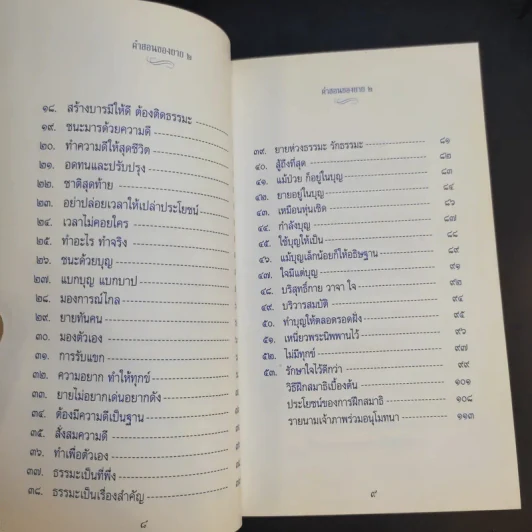 คำสอนของยาย ๒
๑๘. สร้างบารมีให้ดี ต้องติดธรรมะ
๑๙. ชนะมารด้วยความดี
๒๐. ทำความดีให้สุดชีวิต
๒๑. อดทนและปรับปรุง
๒๒. ชาติสุดท้าย
๒๓. อย่าปล่อยเวลาให้เปล่าประโยชน์
๒๔. เวลาไม่คอยใคร
๒๕. ทำอะไร ทำจริง
๒๖. ชนะด้วยบุญ
๒๗. แบกบุญ แบกบาป
๒๘. มองการณ์ไกล
๒๙. ยายทันคน
๓๐. มองตัวเอง
๓๑. การรับแขก
๓๒. ความอยาก ทำให้ทุกข์
๓๓. ยายไม่อยากเด่นอยากดัง
๓๔. ต้องมีความดีเป็นฐาน
๓๕. สั่งสมความดี
๓๖. ทำเพื่อตัวเอง
๓๗. ธรรมะเป็นที่พึ่ง
๓๘. ธรรมะเป็นเรื่องสำคัญ
๘
คำสอนของยาย ๒
๓๙. ยายห่วงธรรมะ รักธรรมะ ๘๑
๔๐. สู้ถึงที่สุด ๘๒
๔๑. แม้ป่วย ก็อยู่ในบุญ ๘๓
๔๒. ยายอยู่ในบุญ ๘๔
๔๓. เหมือนหุ่นเชิด ๘๖
๔๔. กำลังบุญ ๘๗
๔๕. ใช้บุญให้เป็น ๘๘
๔๖. แม้บุญเล็กน้อยก็ให้อธิษฐาน ๘๙
๔๗. ใจมีแต่บุญ ๙๑
๔๘. บริสุทธิ์กาย วาจา ใจ ๙๒
๔๙. บริวารสมบัติ ๙๔
๕๐. ทำบุญให้ตลอดรอดฝั่ง ๙๕
๕๑. เหนี่ยวพระนิพพานไว้ ๙๖
๕๒. ไม่มีทุกข์ ๙๗
๕๓. รักษาใจไว้ดีกว่า ๙๘
วิธีฝึกสมาธิเบื้องต้น ๑๐๑
ประโยชน์ของการฝึกสมาธิ ๑๐๘
รายนามเจ้าภาพร่วมอนุโมทนา ๑๑๓
๙